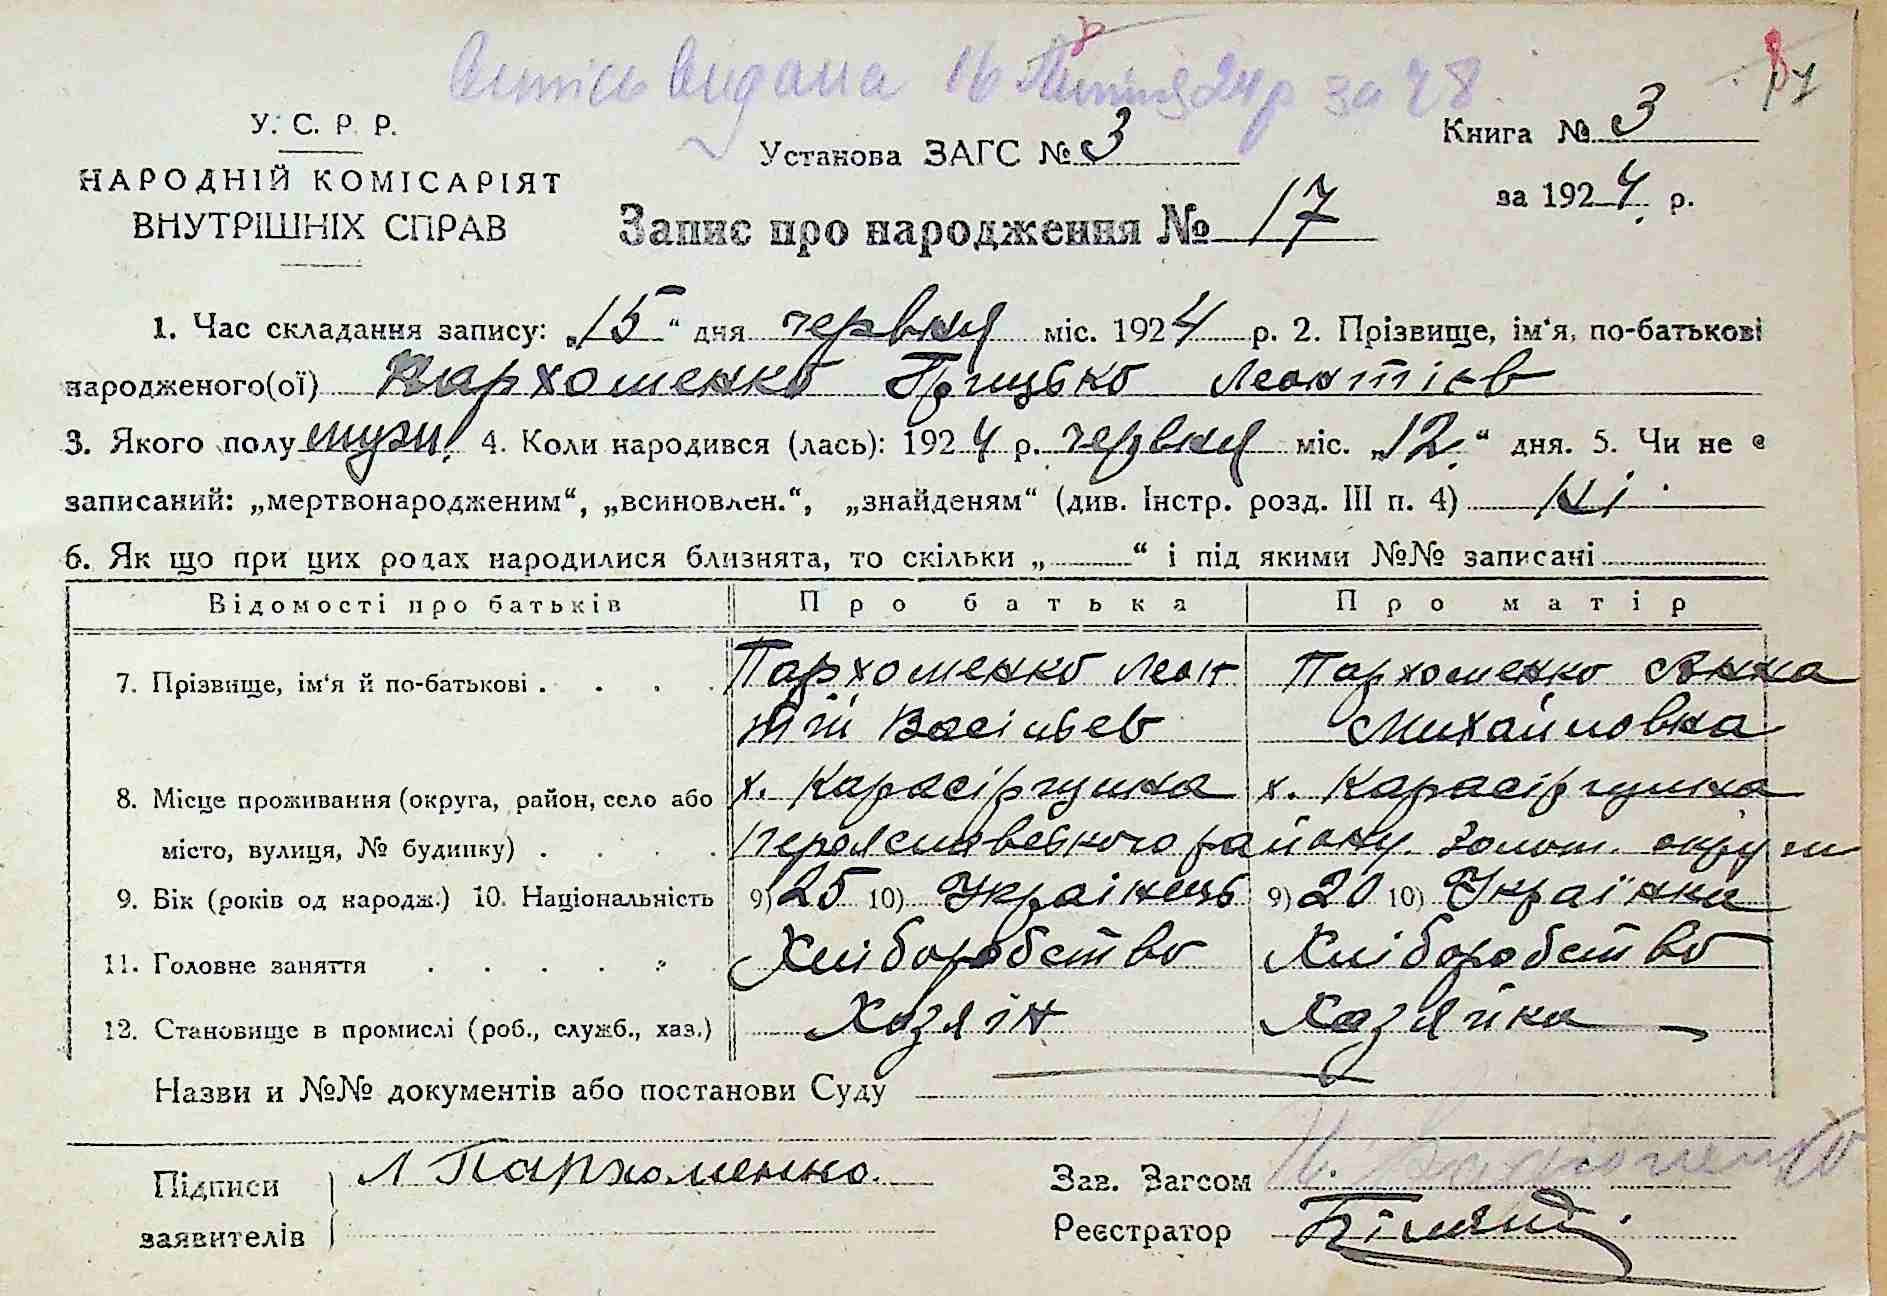 видана 16 24 р за 48
У. С. Р. Р.
НАРОДНІЙ КОМІСАРІЯТ
ВНУТРІШНІХ СПРАВ
Установа ЗАГС № 3
Книга № 3
за 1924 р.
Запис про народження № 17
1. Час складання запису: „15“ дня червня міс. 1924 р. 2. Прізвище, ім‘я, по-батькові
народженого(ої) Пархоменко Грицько Леонтієв
3. Якого полу муж. 4. Коли народився (лась): 1924 р. червня міс. „12“ дня. 5. Чи не є
записаний: „мертвонародженим“, „всиновлен.“, „знайденям“ (див. Інстр. розд. III п. 4) ні.
6. Як що при цих родах народилися близнята, то скільки „ “ і під якими №№ записані
Відомості про батьків Про батька Про матір
7. Прізвище, ім‘я й по-батькові . . . . Пархоменко Леон Пархоменко Анна
тій Васільев Михайловна
8. Місце проживання (округа, район, село або х. Карасіргушка х. Карасіргушка
місто, вулиця, № будинку) . . . . Переяславського району Золот. округи
9. Вік (років од народж.) 10. Національність 9) 25 10) Українець 9) 20 10) Українка
11. Головне заняття . . . . . . Хліборобство Хліборобство
12. Становище в промислі (роб., служб., хаз.) Хазяін Хазяйка
Назви и №№ документів або постанови Суду
Підписи
заявителів
Л Пархоменко
Зав. Загсом
Реєстратор